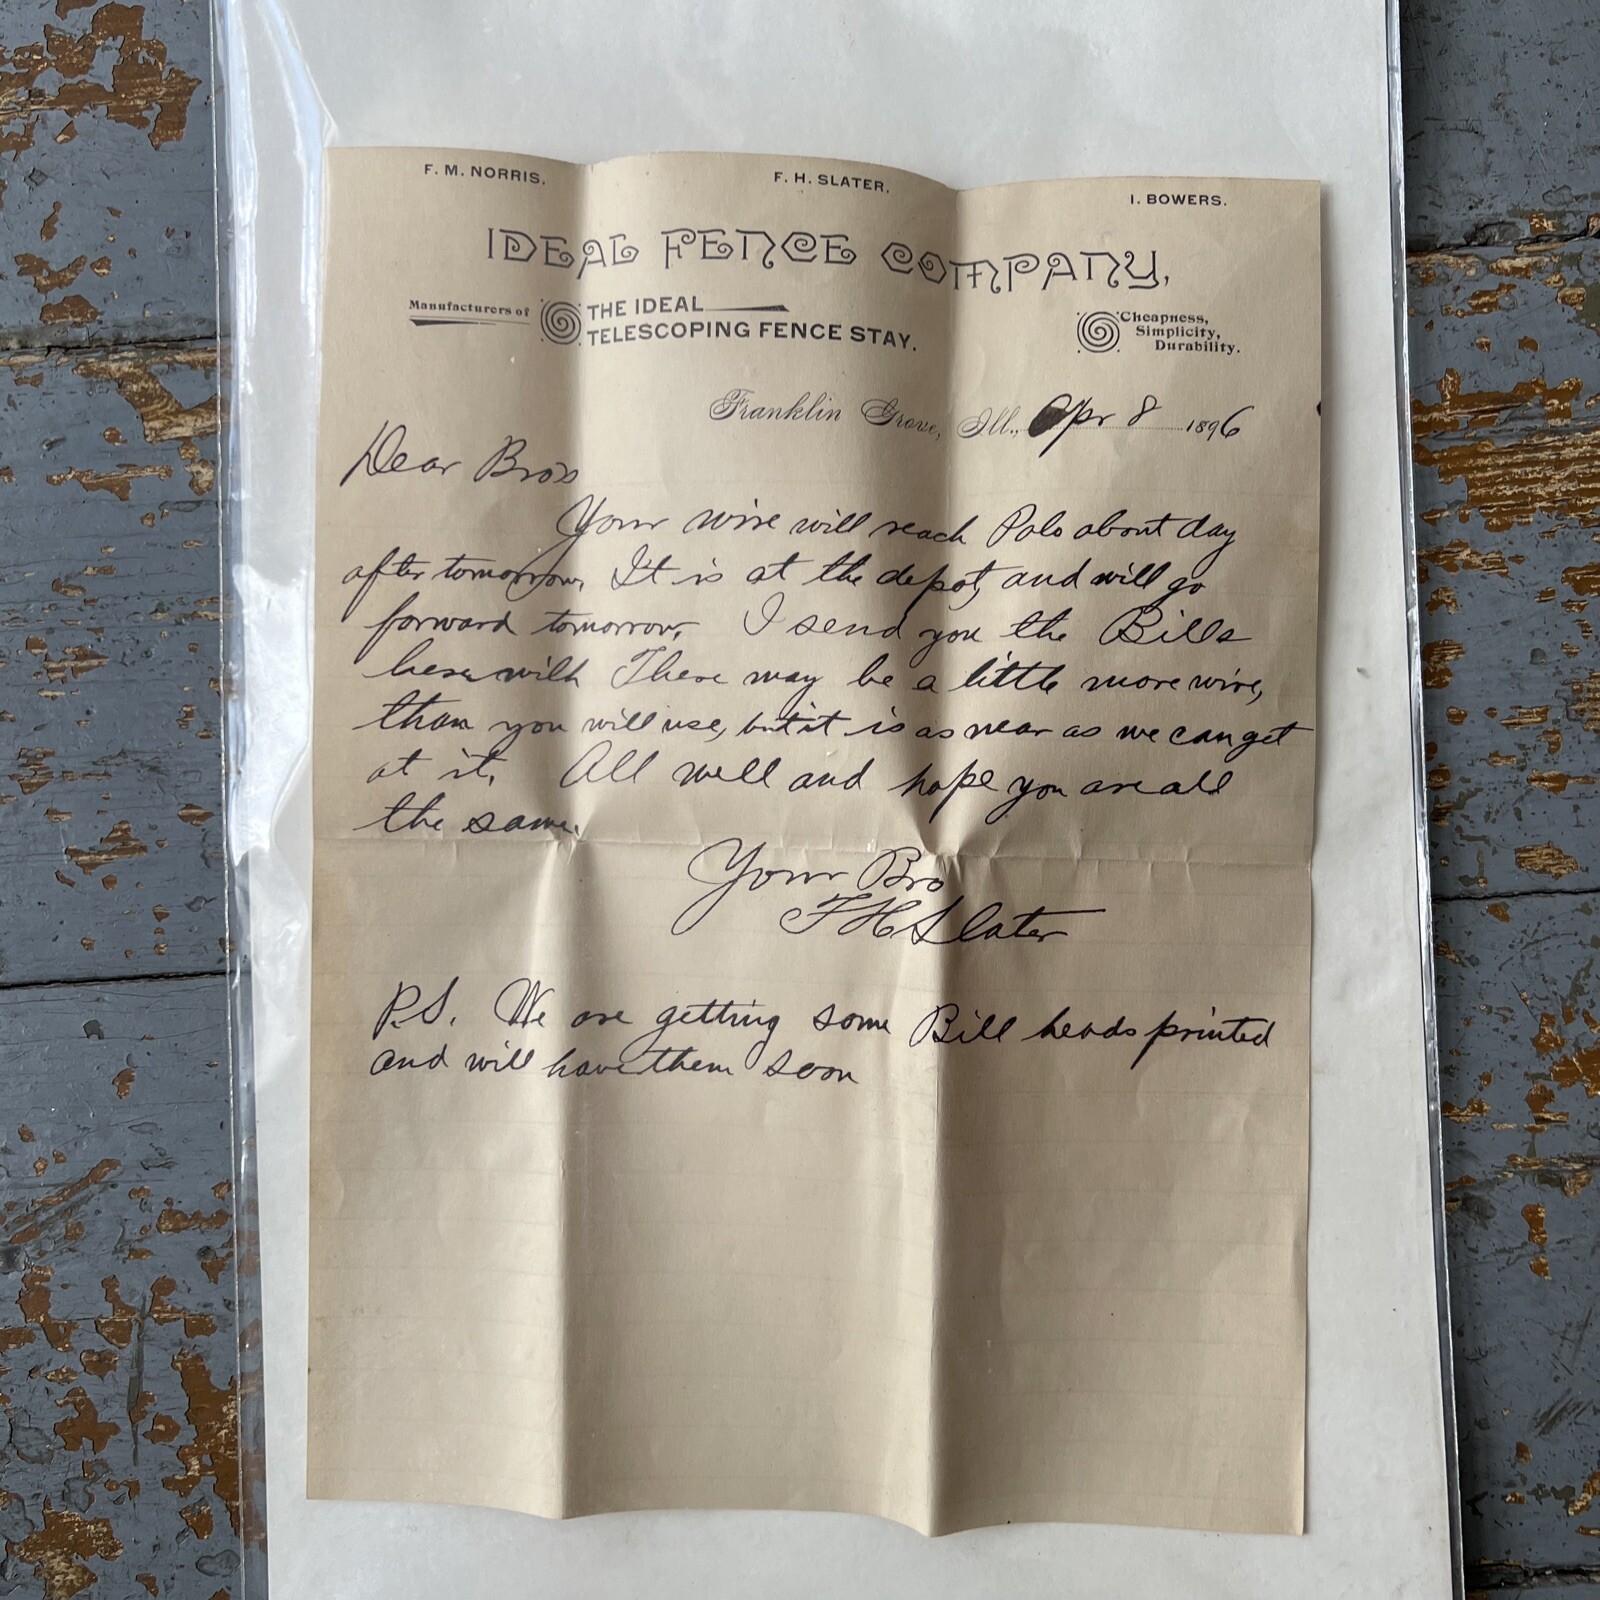 F. M. NORRIS. F. H. SLATER. I. BOWERS.
IDEAL FENCE COMPANY,
Manufacturers of THE IDEAL TELESCOPING FENCE STAY.
Cheapness,
Simplicity,
Durability.
Franklin Grove, Ill., Apr 8 1896
Dear Bros
Your wire will reach Polo about day
after tomorrow. It is at the depot, and will go
forward tomorrow. I send you the Bills
herewith There may be a little more wire,
than you will use, but it is as near as we can get
at it. All well and hope you are all
the same.
Your Bro
F H Slater
P.S. We are getting some Bill heads printed
and will have them soon